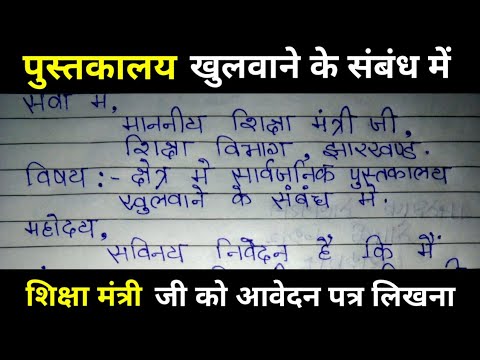 पुस्तकालय खुलवाने के संबंध में
सेवा में,
माननीय शिक्षा मंत्री जी,
शिक्षा विभाग, झारखण्ड.
विषय :- क्षेत्र में सार्वजनिक पुस्तकालय
खुलवाने के संबंध में.
महोदय,
सविनय निवेदन है कि मैं
शिक्षा मंत्री जी को आवेदन पत्र लिखना